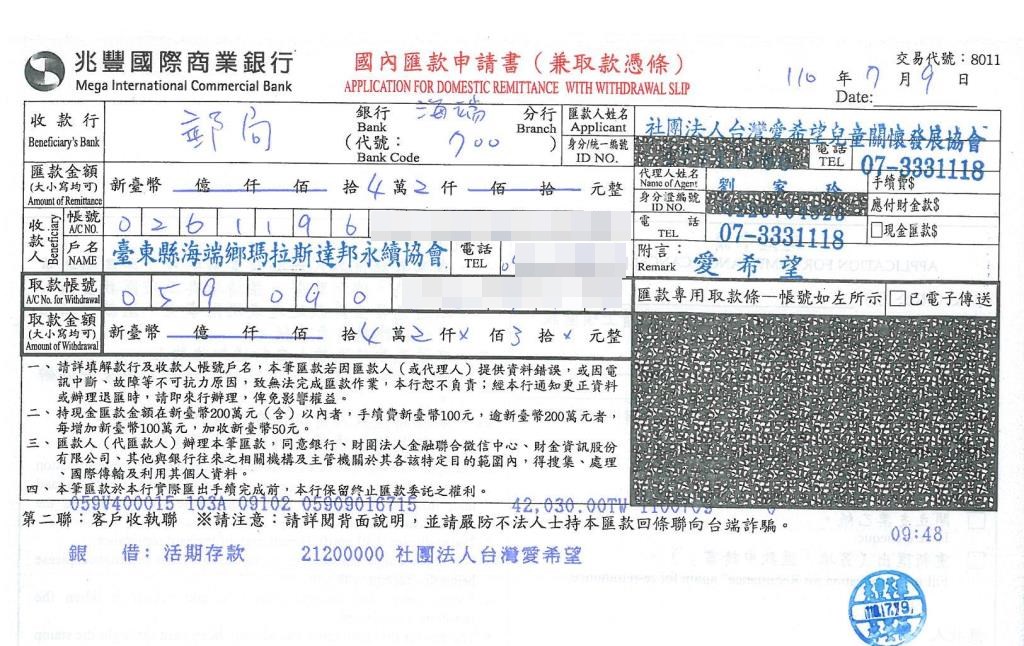 兆豐國際商業銀行
Mega International Commercial Bank
國內匯款申請書（兼取款憑條）
APPLICATION FOR DOMESTIC REMITTANCE WITH WITHDRAWAL SLIP
交易代號：8011
110 年 7 月 9 日
Date:
收款行
Beneficiary's Bank
郵局 銀行 Bank 海端 分行 Branch
（代號： 700 ）
Bank Code
匯款人姓名 Applicant 社團法人台灣愛希望兒童關懷發展協會
身分/統一編號 ID NO.
電話 TEL 07-3331118
匯款金額
(大小寫均可)
Amount of Remittance
新臺幣 億 仟 佰 拾 4 萬 2 仟 佰 拾 元整
代理人姓名 Name of Agent 劉家玲
手續費$
身分證編號 ID NO.
應付財金款$
收款人 Beneficiary
帳號 A/C NO. 0261196
電話 TEL 07-3331118
現金匯款$
戶名 NAME 臺東縣海端鄉瑪拉斯達邦永續協會 電話 TEL
附言： Remark 愛希望
取款帳號
A/C No. for Withdrawal
059 090
匯款專用取款條一帳號如左所示 已電子傳送
取款金額
(大小寫均可)
Amount of Withdrawal
新臺幣 億 仟 佰 拾 4 萬 2 仟 x 佰 3 拾 x 元整
一、請詳填解款行及收款人帳號戶名，本筆匯款若因匯款人（或代理人）提供資料錯誤，或因電
訊中斷、故障等不可抗力原因，致無法完成匯款作業，本行恕不負責；經本行通知更正資料
或辦理退匯時，請即來行辦理，俾免影響權益。
二、持現金匯款金額在新臺幣200萬元（含）以內者，手續費新臺幣100元，逾新臺幣200萬元者，
每增加新臺幣100萬元，加收新臺幣50元。
三、匯款人（代匯款人）辦理本筆匯款，同意銀行、財團法人金融聯合徵信中心、財金資訊股份
有限公司、其他與銀行往來之相關機構及主管機關於其各該特定目的範圍內，得搜集、處理
、國際傳輸及利用其個人資料。
四、本筆匯款於本行實際匯出手續完成前，本行保留終止匯款委託之權利。
059V400015 103A 09102 05909016715 42,030.00TW 1100709 0
第二聯：客戶收執聯 ※請注意：請詳閱背面說明，並請嚴防不法人士持本匯款回條聯向台端詐騙。
09:48
銀 借：活期存款 21200000 社團法人台灣愛希望
110.7.9